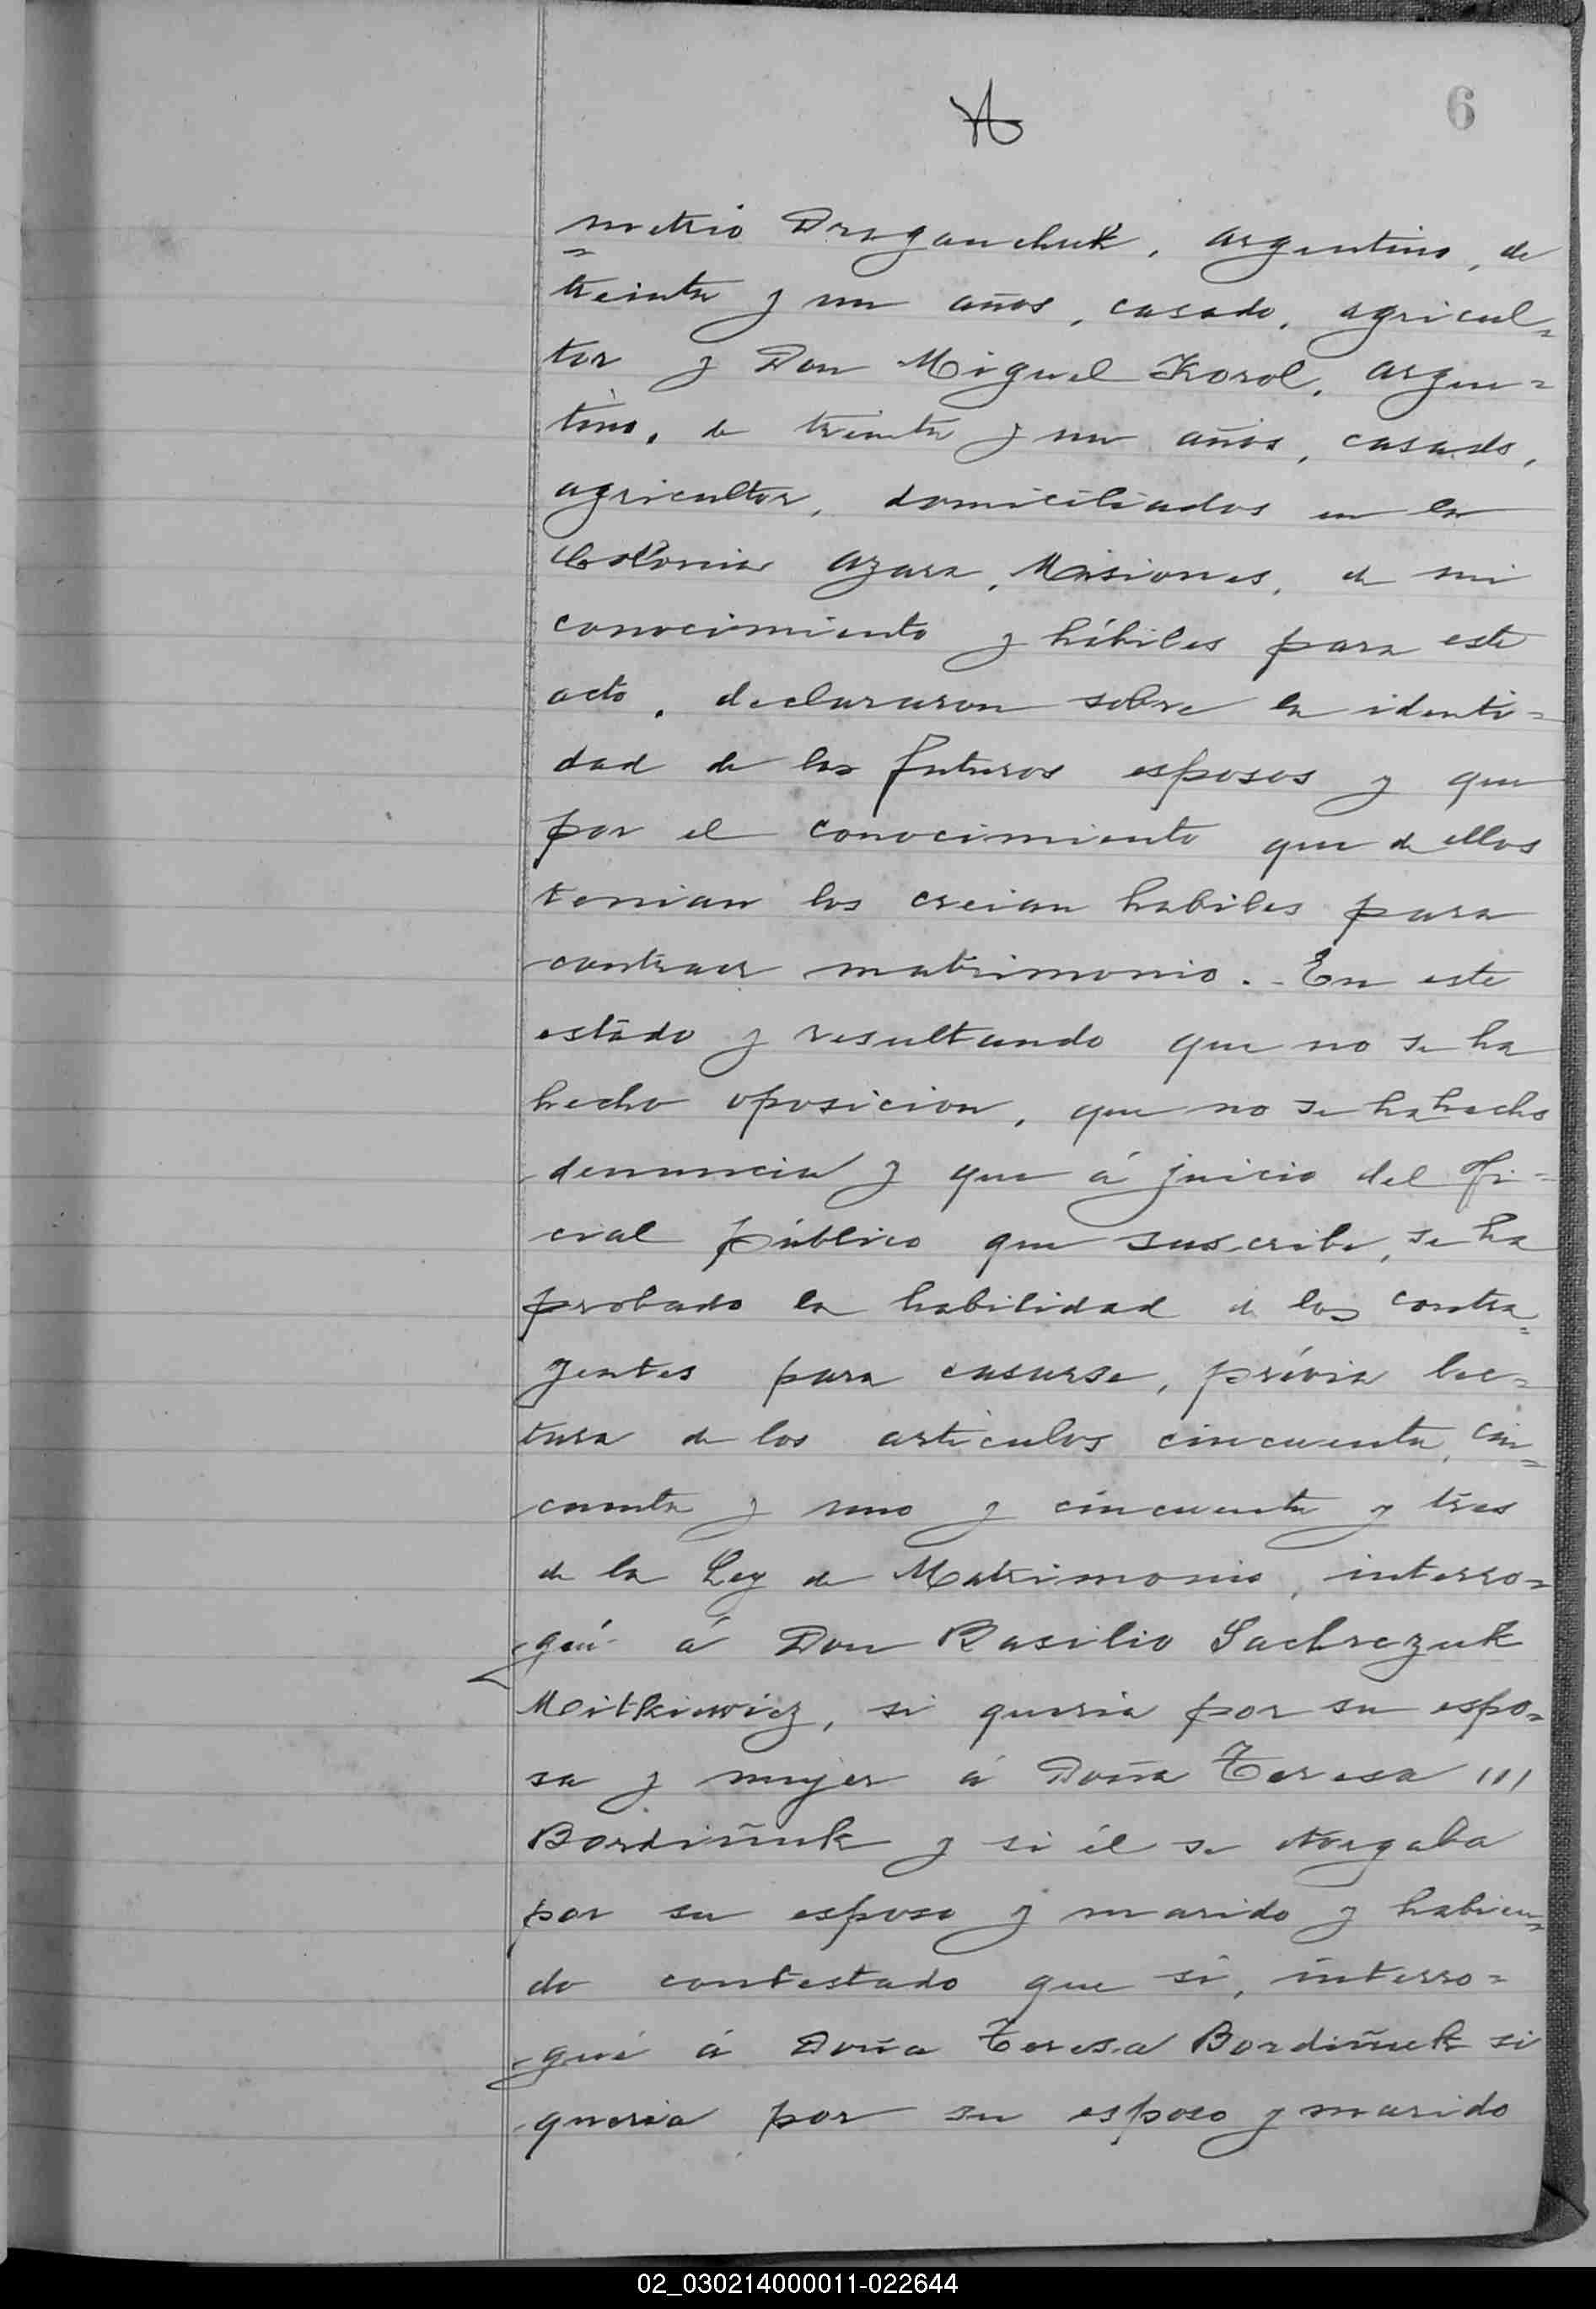 6
metrio Draganchuk, argentino, de
treinta y un años, casado, agricul=
tor y Don Miguel Korol, argen=
tino, de treinta y un años, casado,
agricultor, domiciliados en la
Colonia Azara, Misiones, de mi
conocimiento y hábiles para este
acto, declararon sobre la identi=
dad de los futuros esposos y que
por el conocimiento que de ellos
tenian los creian habiles para
contraer matrimonio.- En este
estado y resultando que no se ha
hecho oposicion, que no se ha hecho
denuncia y que á juicio del Ofi=
cial público que suscribe, se ha
probado la habilidad de los contra=
yentes para casarse, prévia lec=
tura de los articulos cincuenta, cin=
cuenta y uno y cincuenta y tres
de la Ley de Matrimonio, interro=
gué á Don Basilio Sachrczuk
Mitkiewicz, si queria por su espo=
sa y mujer á Doña Teresa ///
Bordiñuk y si él se otorgaba
por su esposo y marido y habien=
do contestado que si, interro=
gué á Doña Teresa Bordiñuk si
queria por su esposo y marido
02_030214000011-022644